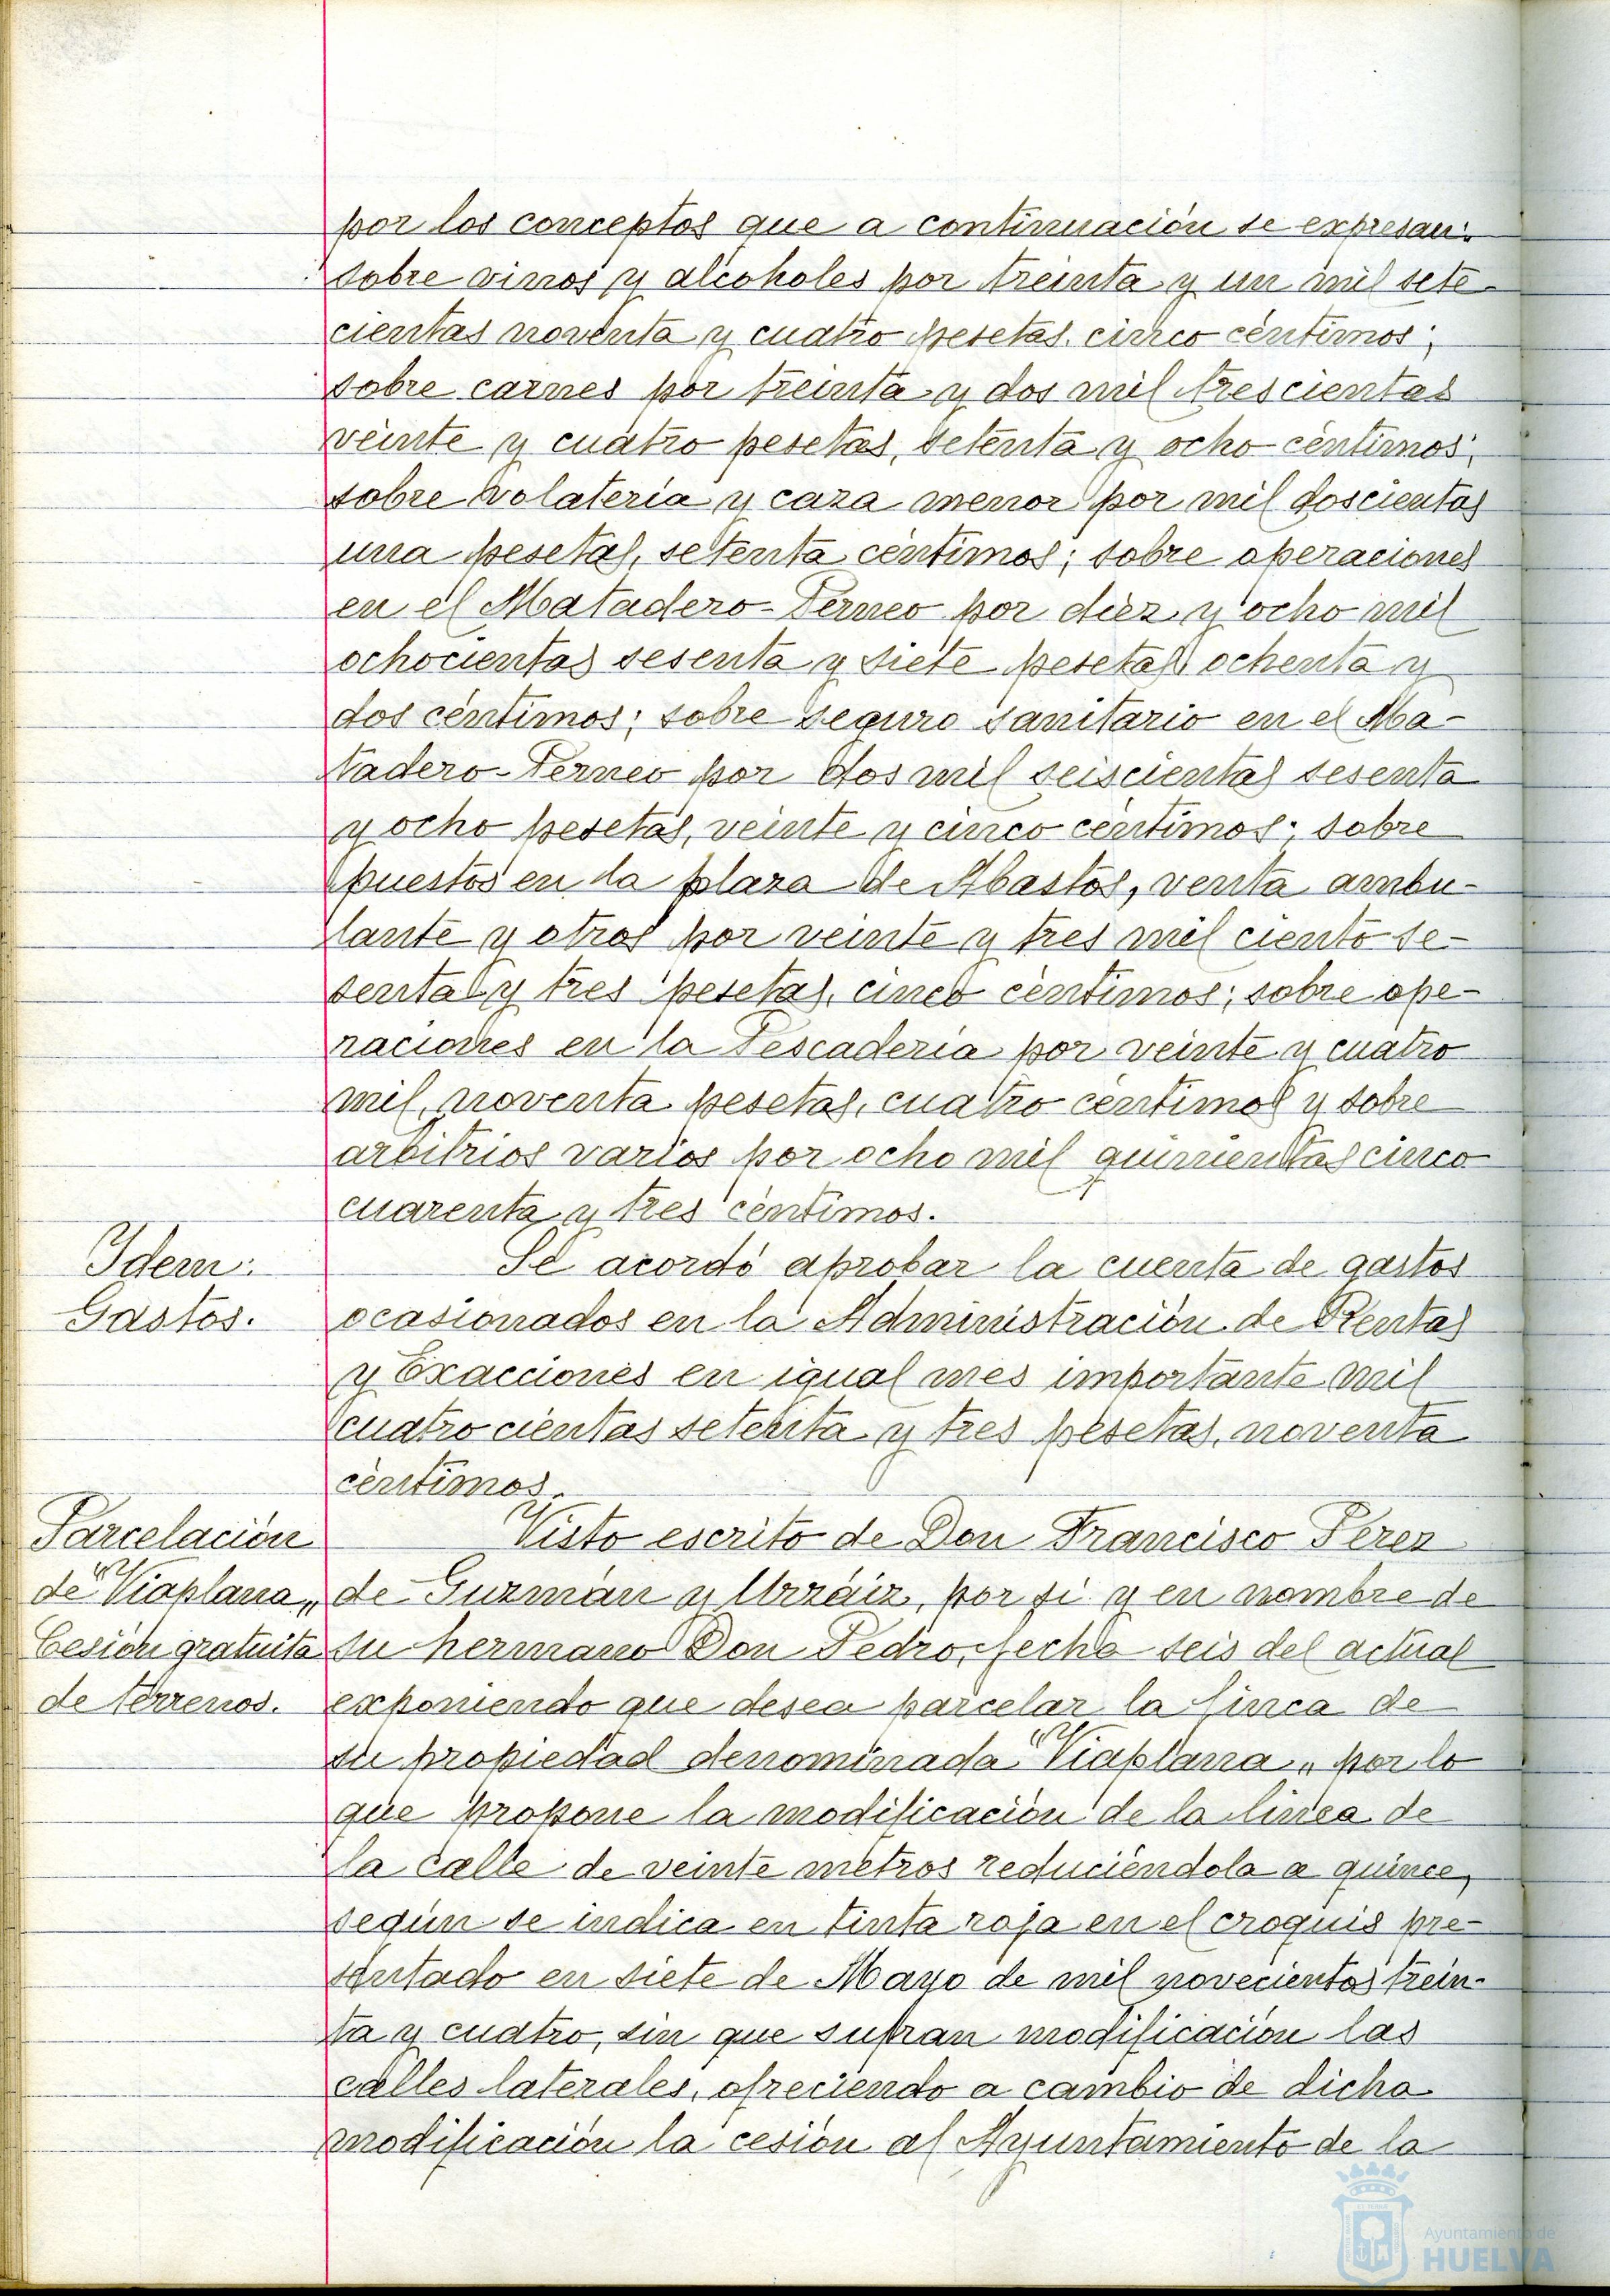 por los conceptos que a continuación se expresan:
sobre vinos y alcoholes por treinta y un mil sete-
cientas noventa y cuatro pesetas, cinco céntimos;
sobre carnes por treinta y dos mil trescientas
veinte y cuatro pesetas, setenta y ocho céntimos;
sobre volatería y caza menor por mil doscientas
una pesetas, setenta céntimos; sobre operaciones
en el Matadero-Perneo por diez y ocho mil
ochocientas sesenta y siete pesetas, ochenta y
dos céntimos; sobre seguro sanitario en el Ma-
tadero-Perneo por dos mil seiscientas sesenta
y ocho pesetas, veinte y cinco céntimos; sobre
puestos en la plaza de Abastos, venta ambu-
lante y otros por veinte y tres mil ciento se-
senta y tres pesetas, cinco céntimos; sobre ope-
raciones en la Pescadería por veinte y cuatro
mil, noventa pesetas, cuatro céntimos y sobre
arbitrios varios por ocho mil quinientas cinco
cuarenta y tres céntimos.
Idem:
Gastos.
Se acordó aprobar la cuenta de gastos
ocasionados en la Administración de Rentas
y Exacciones en igual mes importante mil
cuatrocientas setenta y tres pesetas, noventa
céntimos.
Parcelación
de "Viaplana„
Cesión gratuita
de terrenos.
Visto escrito de Don Francisco Perez
de Guzmán y Urzáiz, por si y en nombre de
su hermano Don Pedro, fecha seis del actual
exponiendo que desea parcelar la finca de
su propiedad denominada "Viaplana„ por lo
que propone la modificación de la linea de
la calle de veinte metros reduciéndola a quince,
según se indica en tinta roja en el croquis pre-
sentado en siete de Mayo de mil novecientos trein-
ta y cuatro, sin que sufran modificación las
calles laterales, ofreciendo a cambio de dicha
modificación la cesión al Ayuntamiento de la
Ayuntamiento de
HUELVA